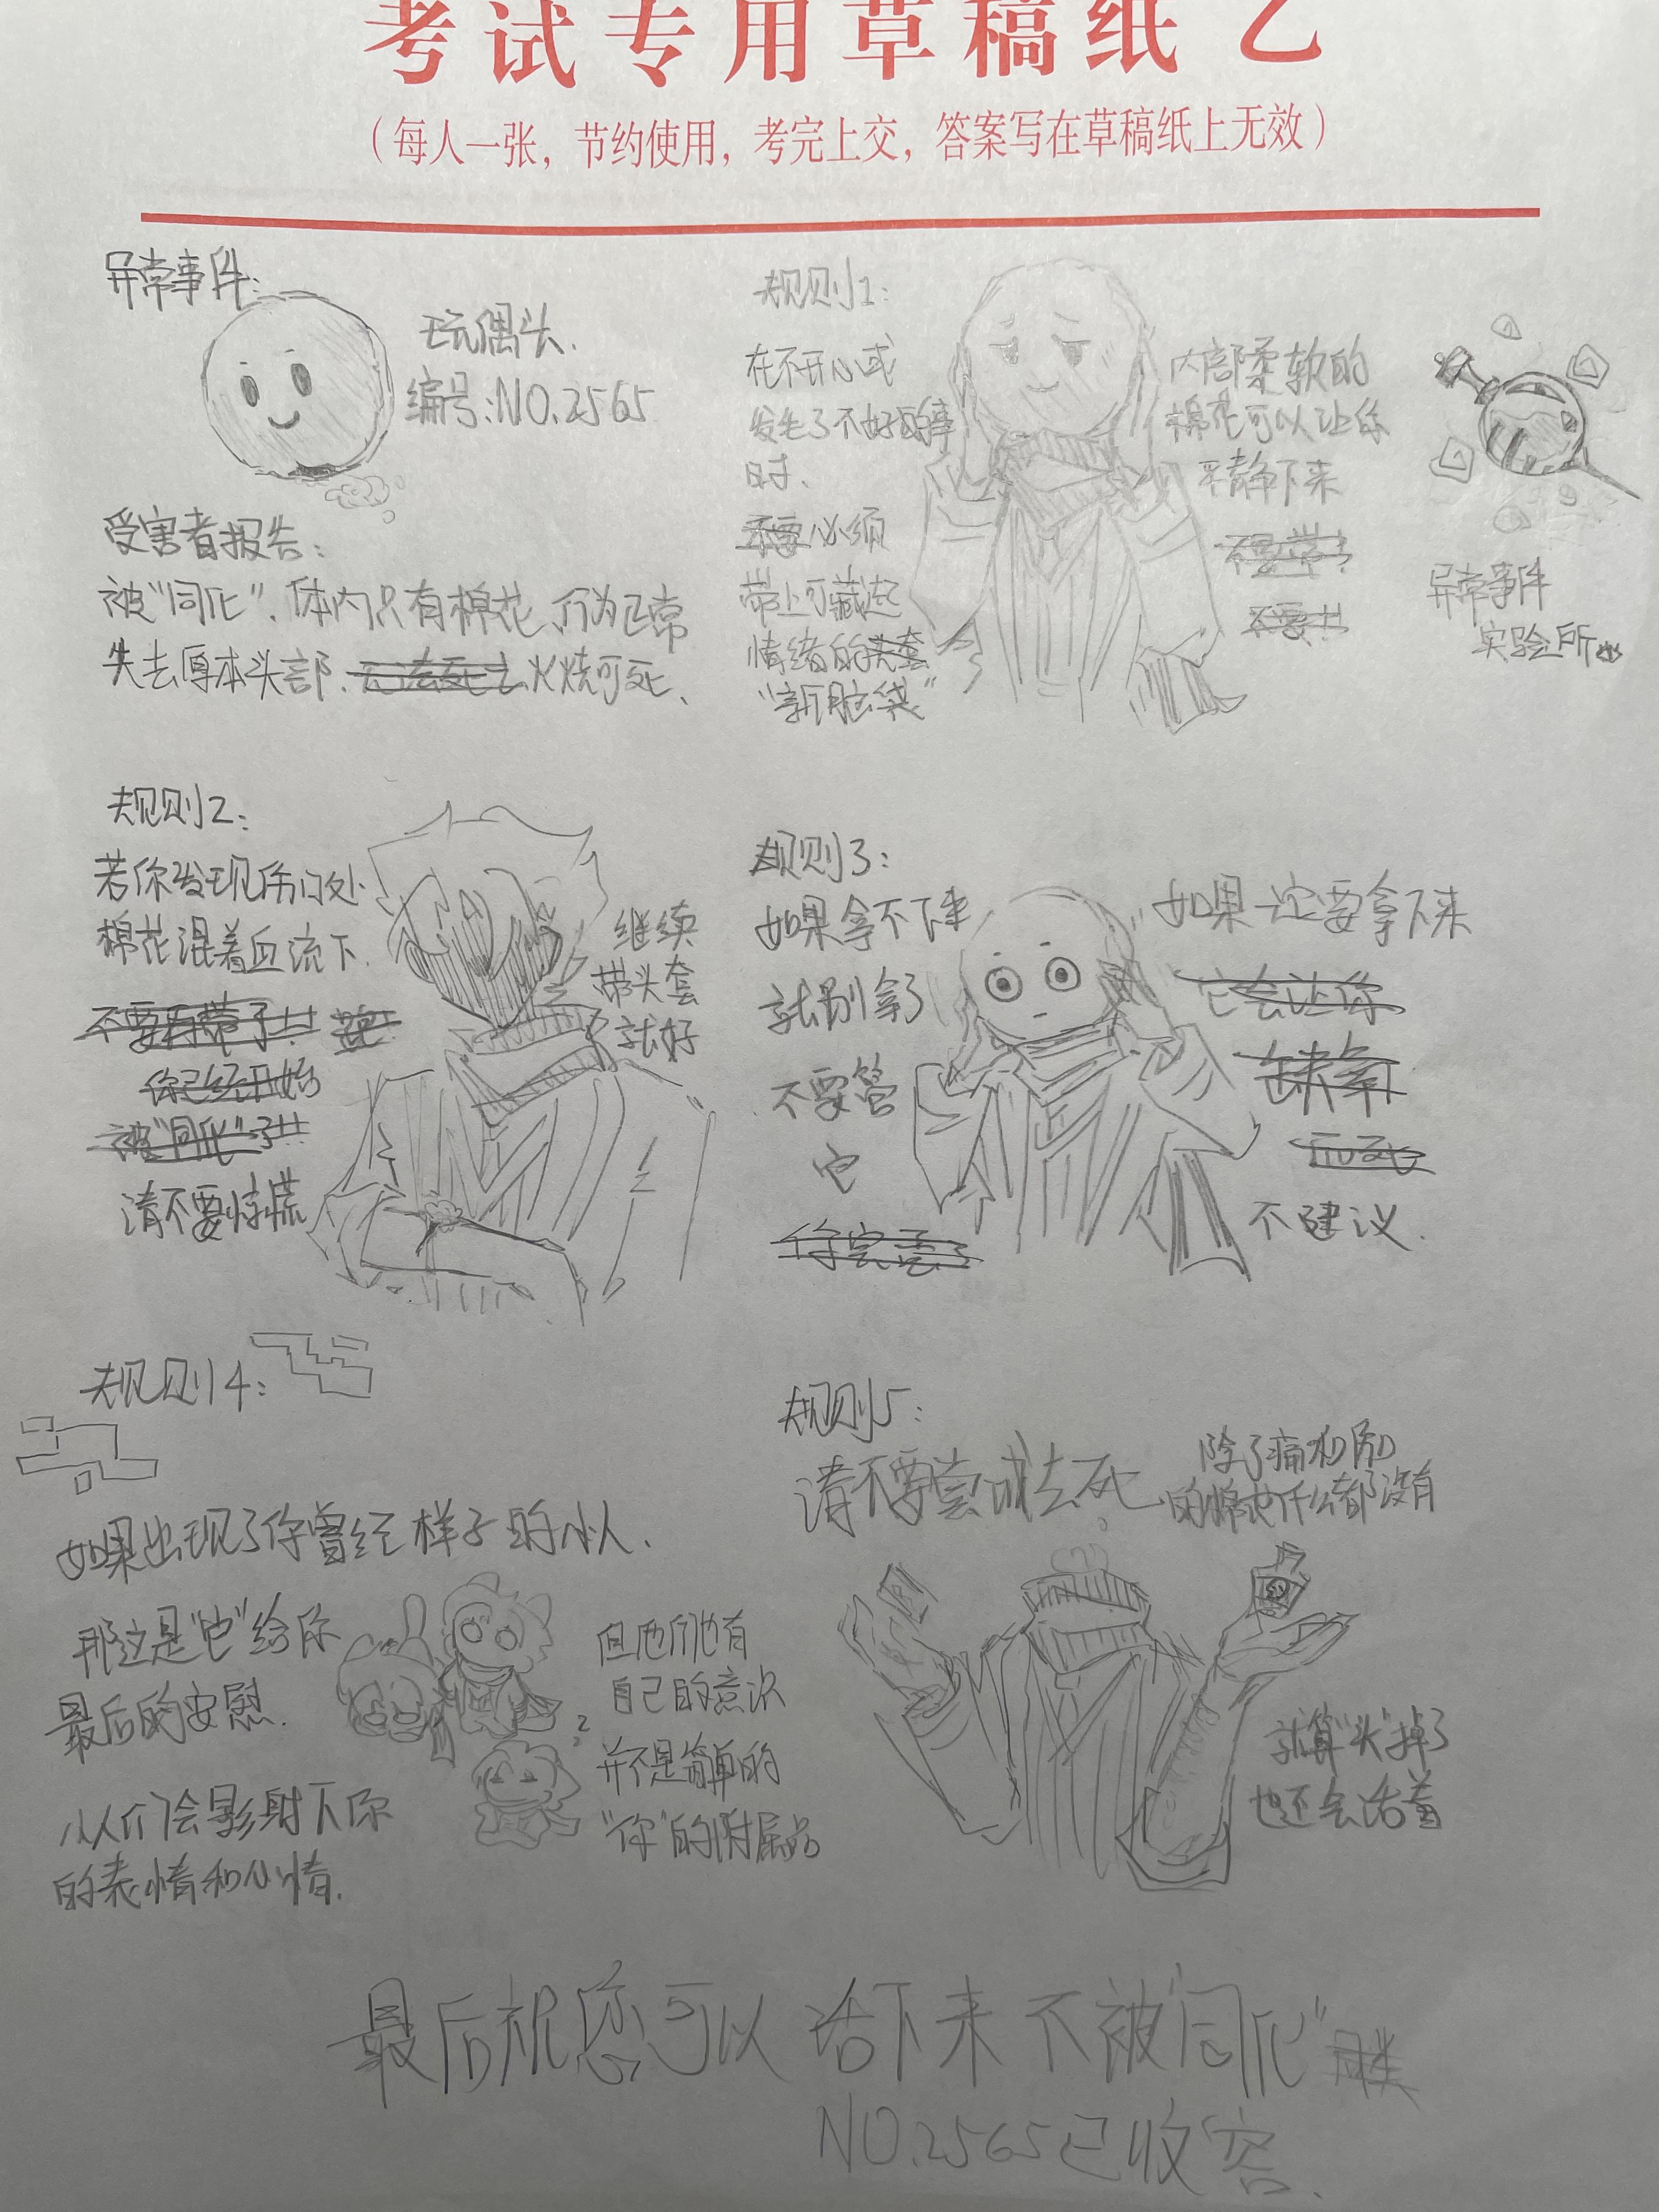 考试专用草稿纸 乙
（每人一张，节约使用，考完上交，答案写在草稿纸上无效）
异常事件:
玩偶头.
编号:NO.2565
受害者报告:
被"同化".体内只有棉花、行为正常
失去原本头部.无法死去火烧可死、
规则1:
在不开心或
发生了不好的事
时、
不要必须
带上可藏起
情绪的头套
"新脑袋"
内部柔软的
棉花可以让你
平静下来
不要带了
不要!!
异常事件
实验所
规则2:
若你发现伤口处
棉花混着血流下.
不要再带了!!
你已经开始
被"同化"了!!
请不要惊慌
继续
带头套
就好
规则3:
如果拿不下来
就别拿了
不要管
它
你完蛋了
如果一定要拿下来
它会让你
缺氧
而死
不建议.
规则4:
如果出现了你曾经样子的小人.
那这是"它"给你
最后的安慰.
小人们会影射下你
的表情和心情.
但他们也有
自己的意识
并不是简单的
"你"的附属品
规则5:
请不要尝试去死.
除了痛和
的棉花什么都没有
就算"头"掉了
也还会活着
最后祝您可以 活下来 不被"同化"
NO.2565已收容.